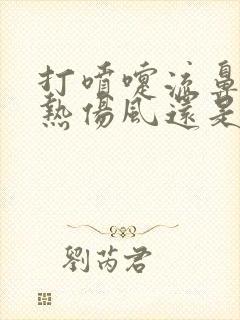 打噴嚏流鼻
熱傷風還是
劉芮君